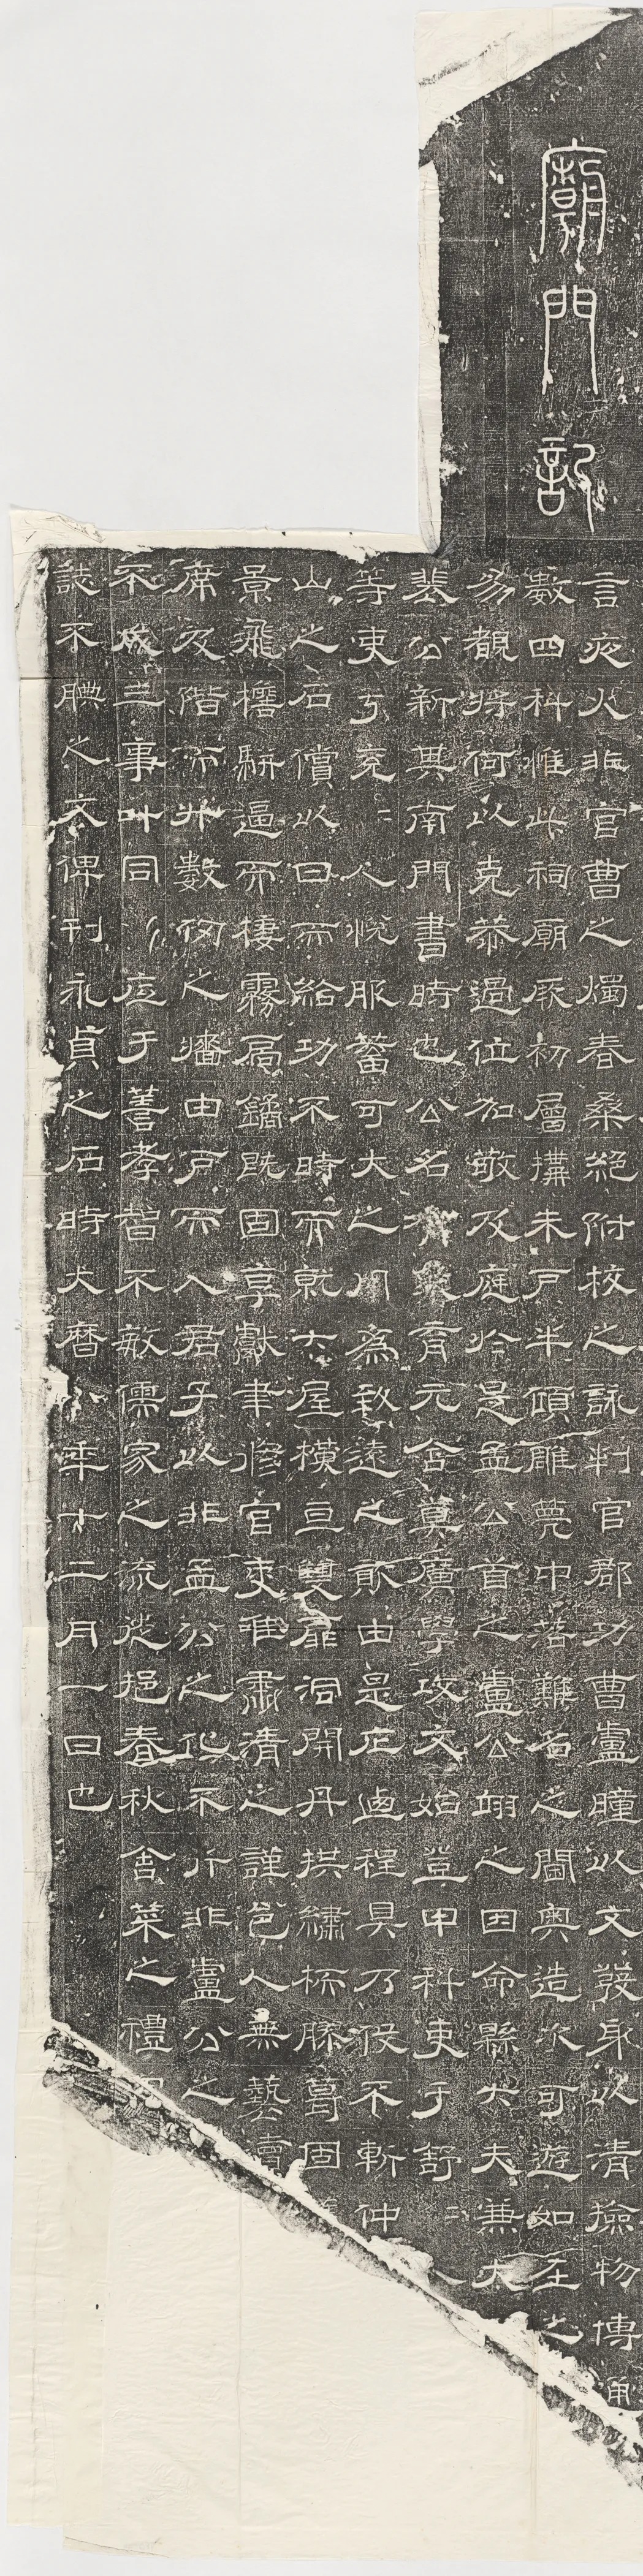 廟門記
言夜火非官曹之燭春桑絕附枝之詠判官郡功曹盧瞳以文發身以清撿物博通
數四科惟此祠廟厥初層構未戶半頹雕甍中落難名之閫奧造次可遊如在之
易覩將何以克恭過位加敬及庭於是孟公首之盧公翊之因命縣大夫兼大
裴公新其南門書時也公名育元含真廣學攻文始登甲科吏于舒
等吏方克人悅服蓄可大之用為致遠之由是庀逎程具乃役不斬仲
山之石償以日而給功不時而就大屋橫亘雙扉洞開丹拱繡栭膠葛固
景飛檐駢逼而棲霧扃鐍既固享獻聿修官吏唯肅清之謹邑人無藝瀆
席及階而井數仞之墻由戶而入君子以非孟公之化不行非盧公之
不成三事叶同應于善孝智不敏儒家之流從挹春秋舍菜之禮
誌不腆之文俾刊永貞之石時大曆八年十二月一日也